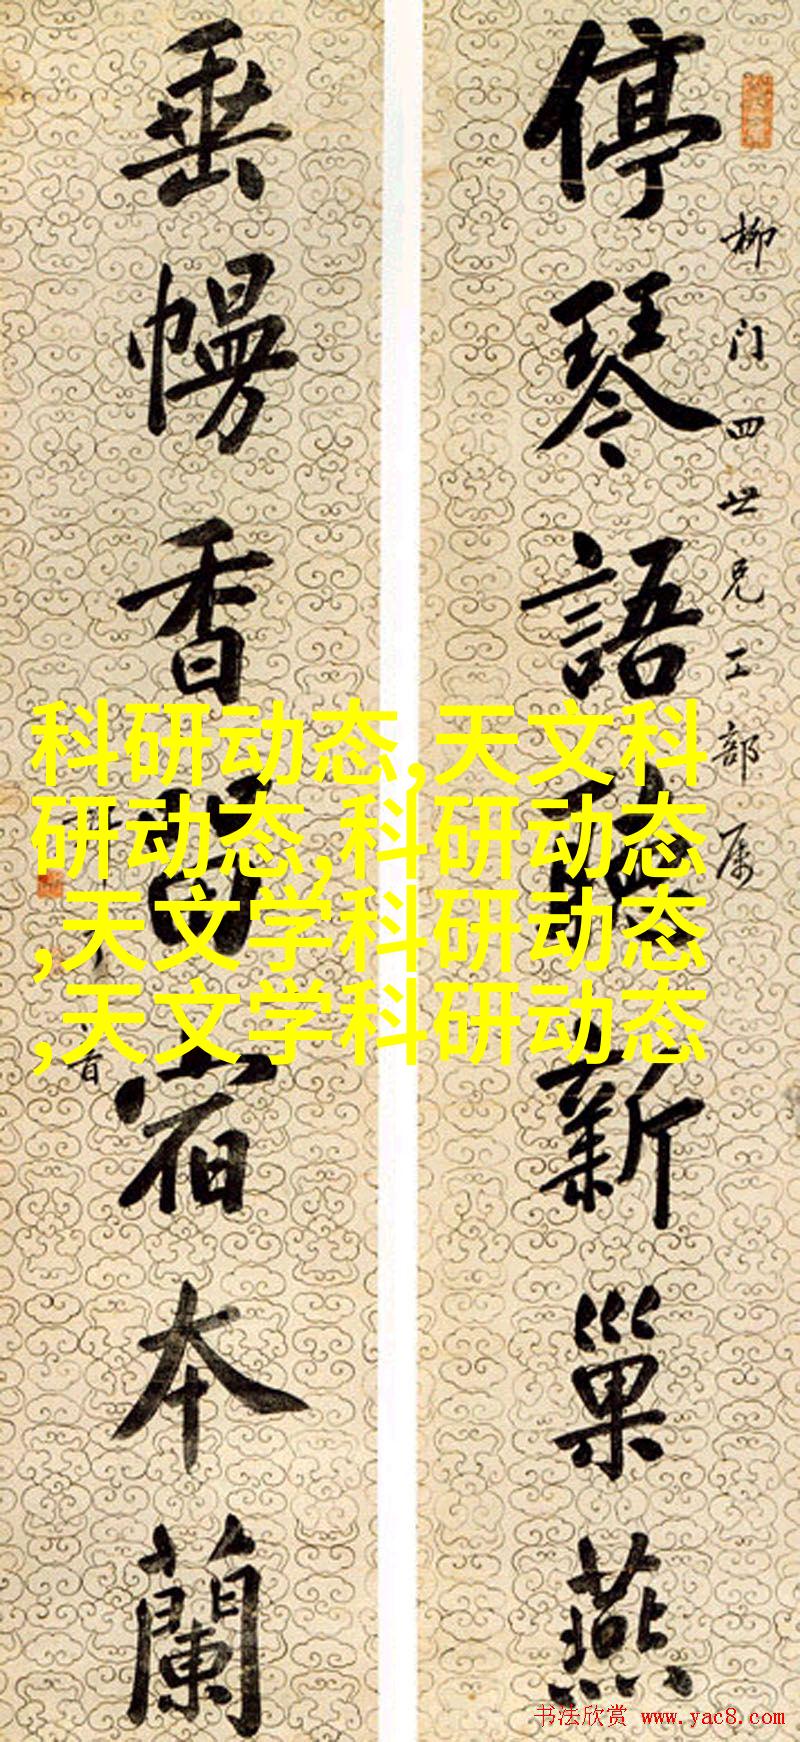 停琴語聽新巢燕
柳门四世兄工部属
垂幔香留宿本蘭
科研动态,天文科
研动态,科研动态
,天文学科研动态
,天文学科研动态
书法欣赏 www.yac8.com